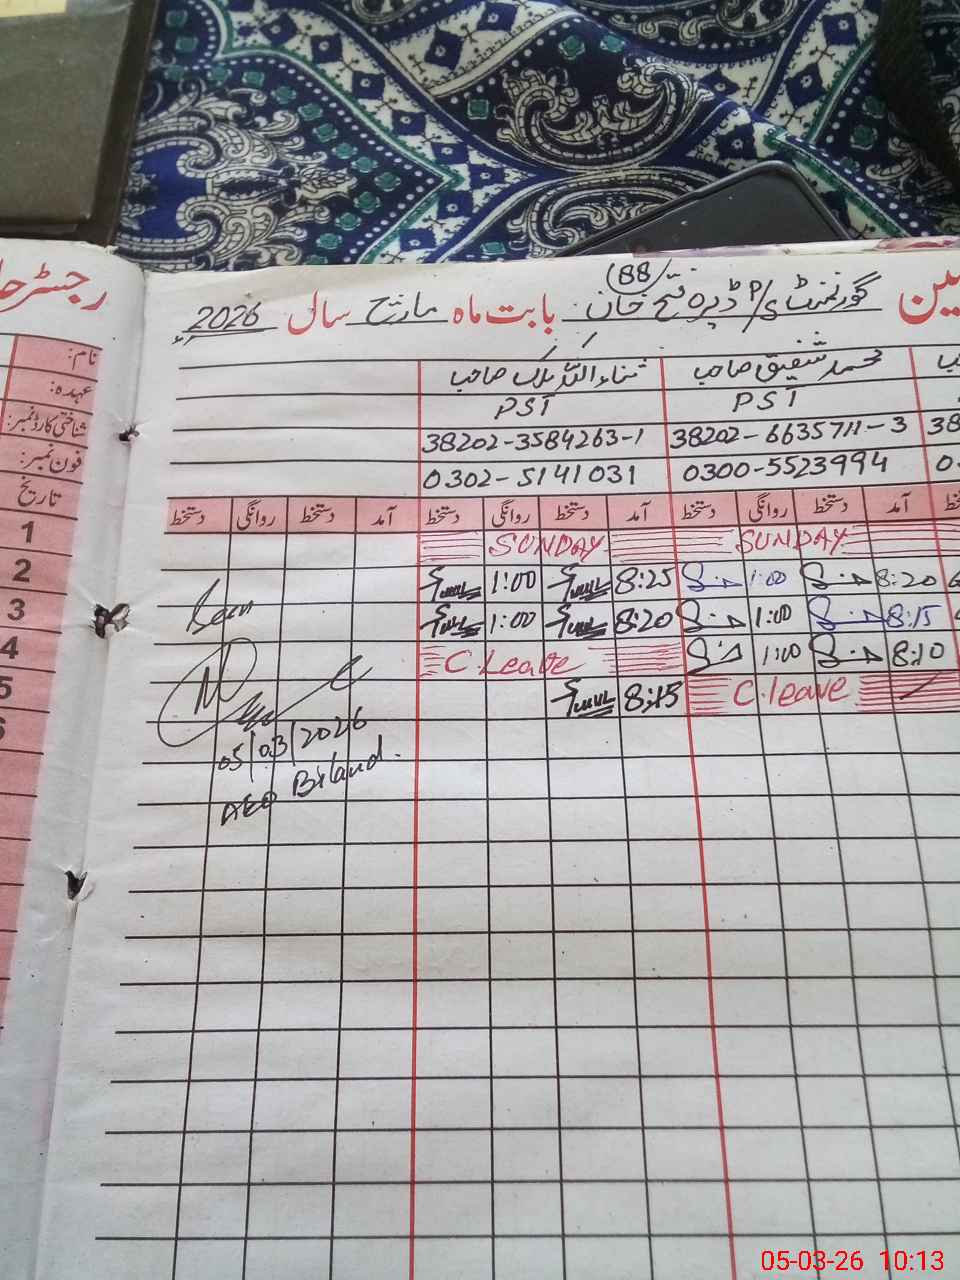 رجسٹر حا
نام:
عہدہ:
شناختی کارڈ نمبر:
فون نمبر:
تاریخ
1
2
3
4
5
6
ین گورنمنٹ P/S ڈیرہ فتح خان (BB) بابت ماہ مارچ سال 2026
محمد شفیق صاحب ثناء اللہ صاحب
PST PST
38202-3584263-1 38202-6635711-3 38
0302-5141031 0300-5523994 0
دستخط روانگی دستخط آمد دستخط روانگی دستخط آمد دستخط روانگی دستخط آمد
SUNDAY SUNDAY
1:00 8:25 1:00 8:20
1:00 8:20 1:00 8:15
C.Leave 1:00 8:10
8:15 C.leave
05/03/2026
AEO
05-03-26 10:13